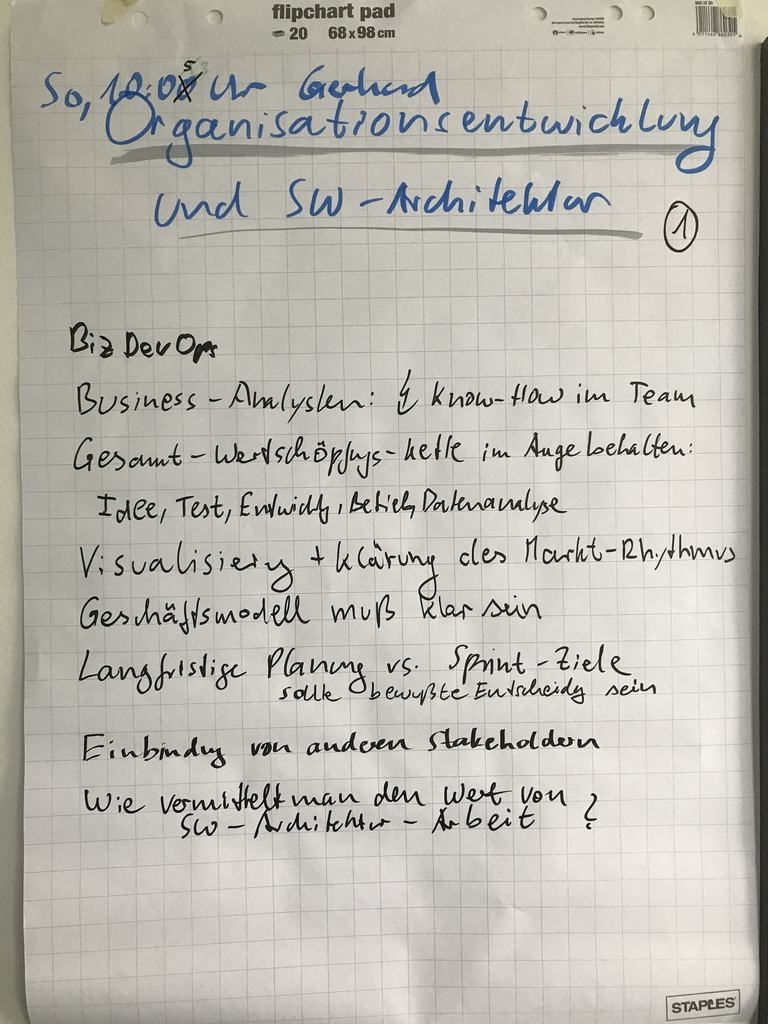 flipchart pad
20 68 x 98 cm
So, 10:05 Uhr Gerhard
Organisationsentwicklung
und SW-Architektur
1
BizDevOps
Business-Analysten: ↯ Know-How im Team
Gesamt-Wertschöpfungs-kette im Auge behalten:
Idee, Test, Entwicklg, Betrieb, Datenanalyse
Visualisierg + Klärung des Markt-Rhythmus
Geschäftsmodell muß klar sein
Langfristige Planung vs. Sprint-Ziele
sollte bewußte Entscheidg sein
Einbindug von anderen Stakeholdern
Wie vermittelt man den Wert von
SW-Architektur-Arbeit ?
STAPLES